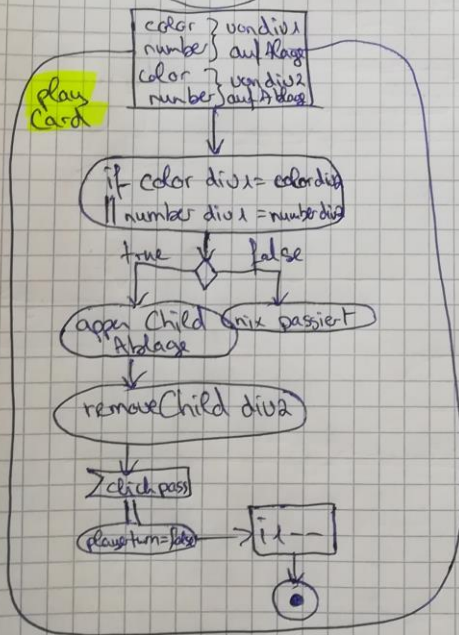 color } von div1
number } auf Ablage
color } von div2
number } auf Ablage
play
Card
if color div1 = color div2
|| number div1 = number div2
true false
appen Child nix passiert
Ablage
removeChild div2
click pass
||
playerturn=false
i1--